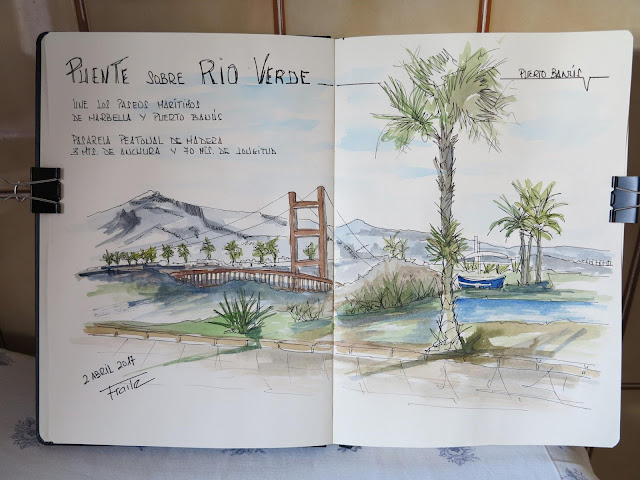 PUENTE SOBRE RIO VERDE
PUERTO BANÚS
UNE LOS PASEOS MARÍTIMOS
DE MARBELLA Y PUERTO BANÚS
PASARELA PEATONAL DE MADERA
3 MTS. DE ANCHURA Y 70 MTS. DE LONGITUD
2 ABRIL 2017
Fraile